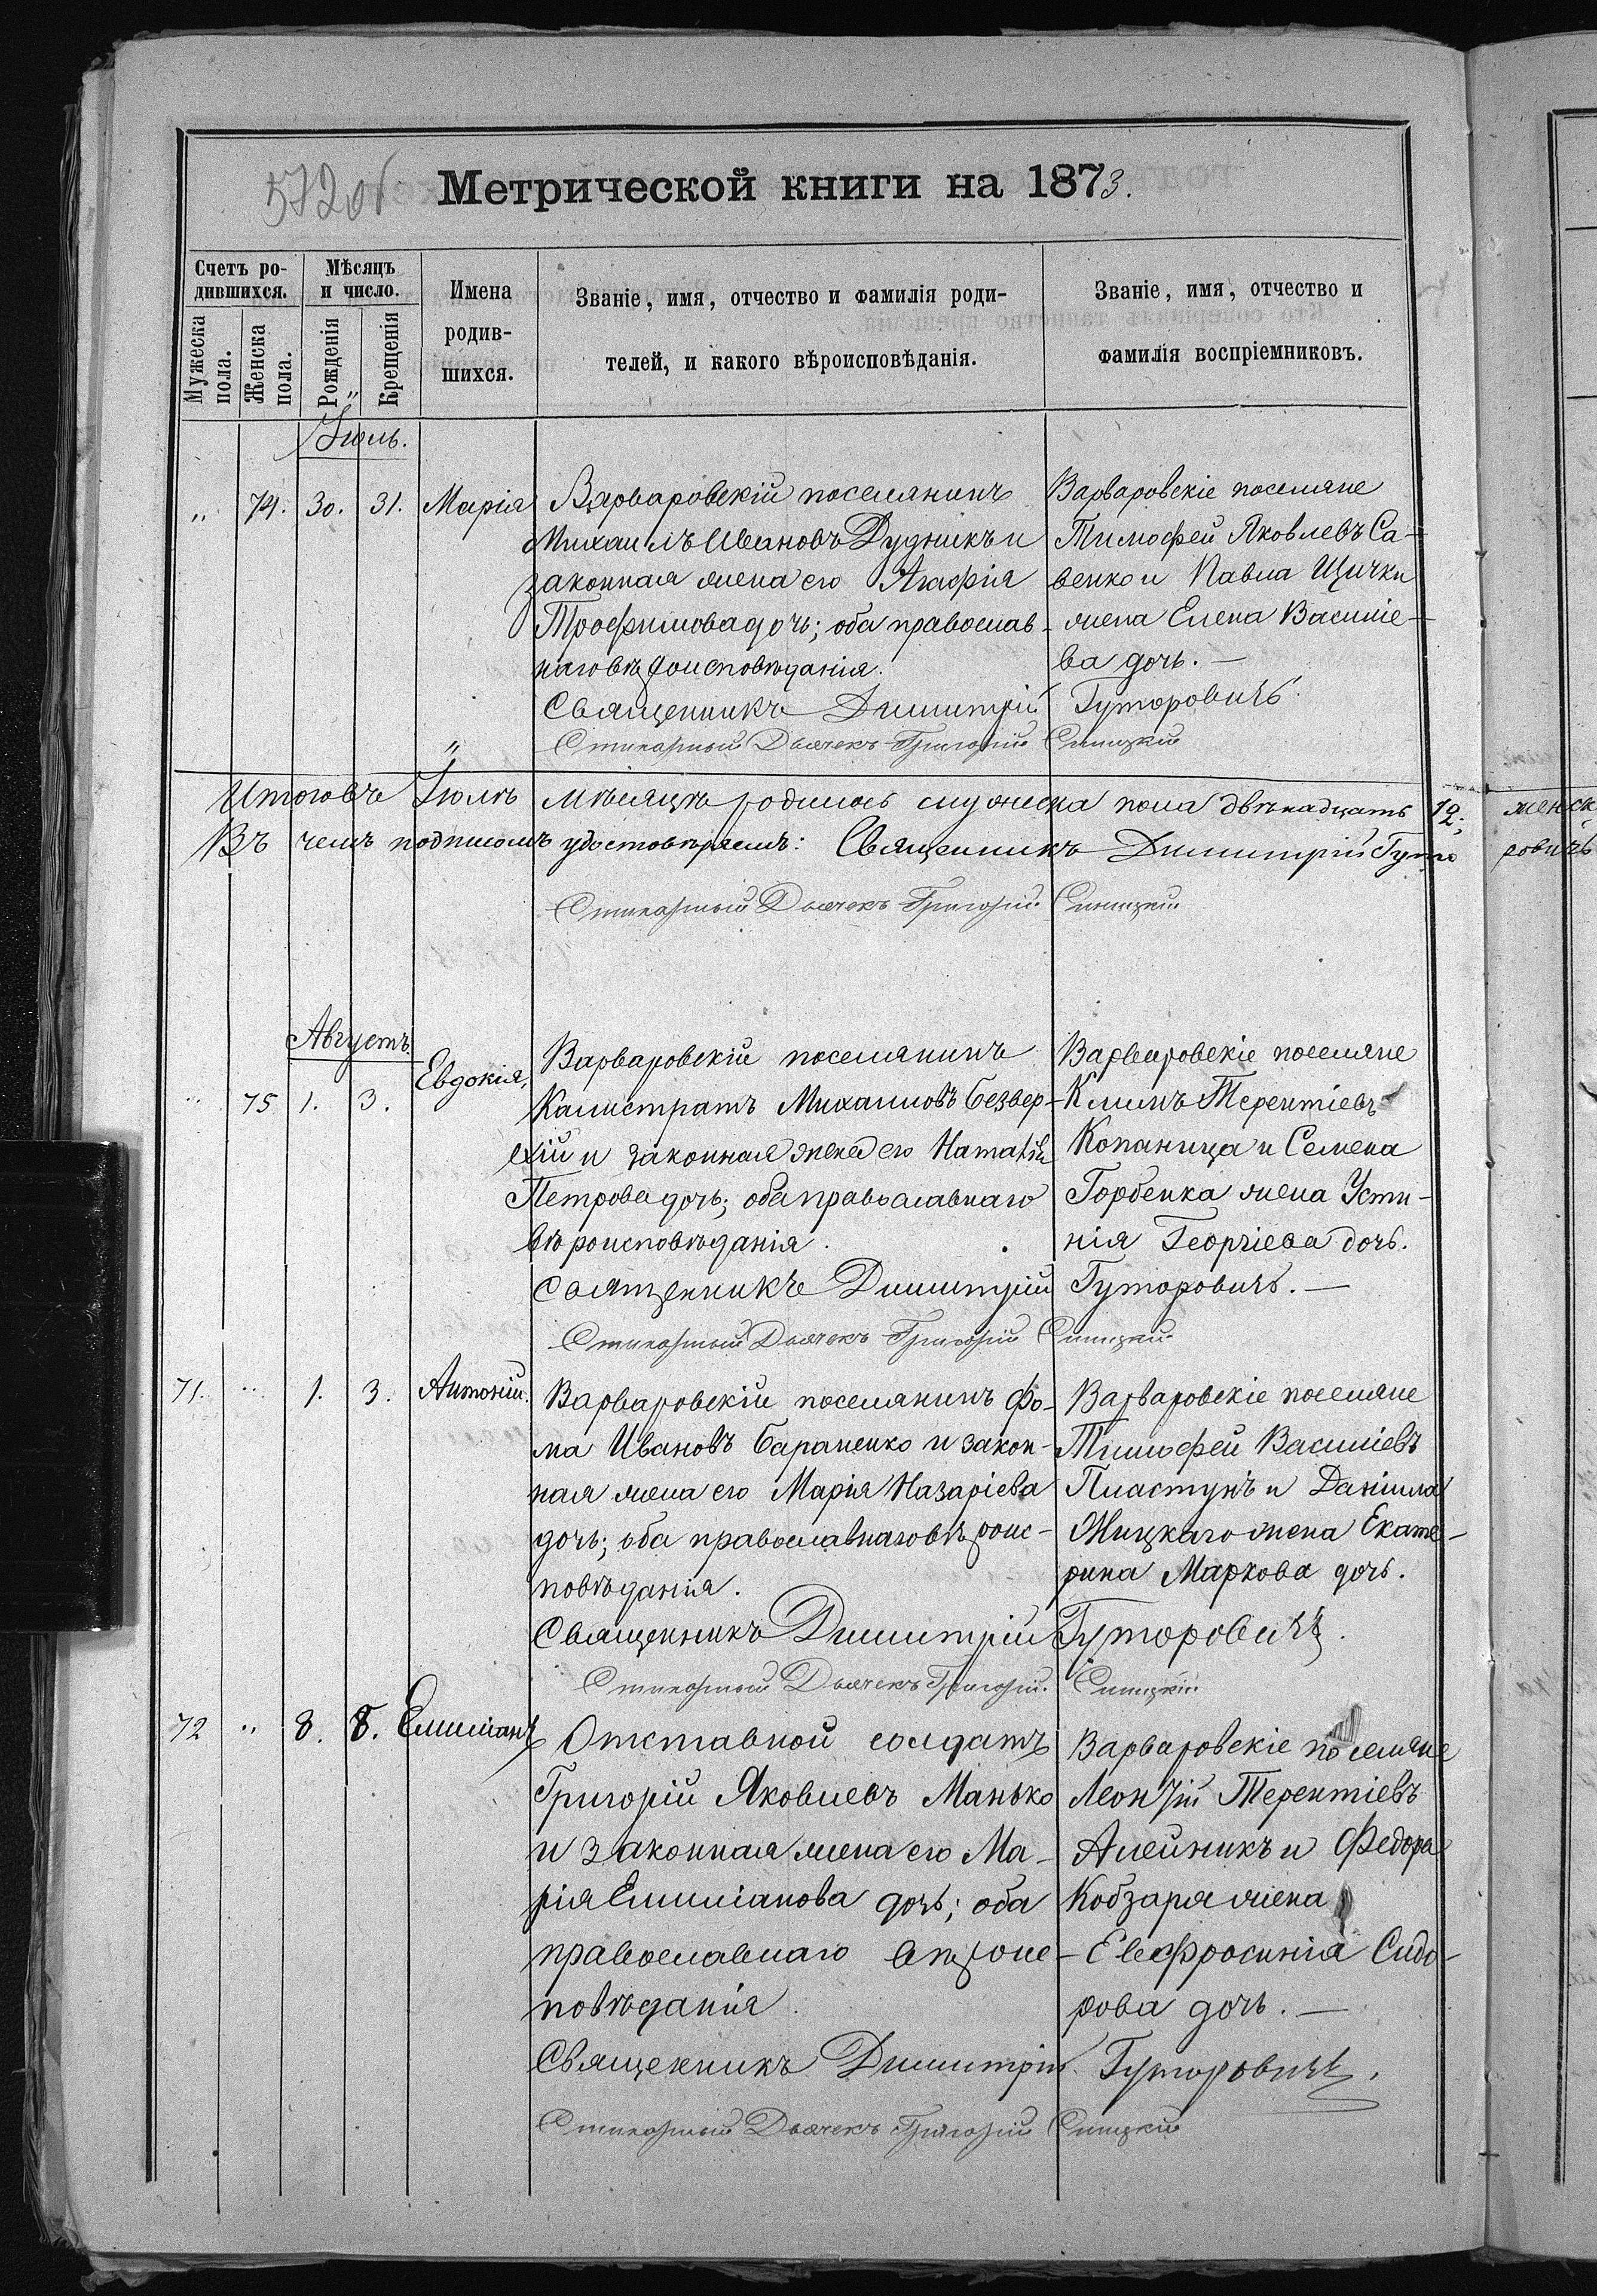 572об
Метрической книги на 1873.
Счетъ ро-
дившихся.
Мужеска пола.
Женска пола.
Мѣсяцъ
и число.
Рожденія
Крещенія
Имена
родив-
шихся.
Званіе, имя, отчество и фамилія роди-
телей, и какого вѣроисповѣданія.
Званіе, имя, отчество и
фамилія воспріемниковъ.
Іюль.
„ 74. 30. 31. Марія
Варваровскій поселянинъ
Михаилъ Ивановъ Дудникъ и
законная жена его Агафія
Трофимова дочь; оба православ-
наго вѣроисповѣданія.
Варваровскіе поселяне
Тимофей Яковлевъ Са-
венко и Павла Щички
жена Елена Василіе-
ва дочь. —
Священникъ Димитрій Гуторовичъ
Стихарный Дьячекъ Григорій Синицкій
Итого въ Іюлѣ мѣсяцѣ родилось мужеска пола двѣнадцать 12; женск
Въ чемъ подписомъ удостовѣряемъ: Священникъ Димитрій Гуто ровичъ
Стихарный Дьячекъ Григорій Синицкій
Августъ.
„ 75 1. 3. Евдокія,
Варваровскій поселянинъ
Калистратъ Михаиловъ Безвер-
хій и законная жена его Наталія
Петрова дочь; оба православнаго
вѣроисповѣданія.
Варваровскіе поселяне
Климъ Терентіевъ
Копаница и Семена
Горбенка жена Усти-
нія Георгіева дочь.
Священникъ Димитрій Гуторовичъ. —
Стихарный Дьячекъ Григорій Синицкій
71. „ 1. 3. Антоній.
Варваровскій поселянинъ Фо-
ма Ивановъ Бараненко и закон-
ная жена его Марія Назаріева
дочь; оба православнаго вѣроис-
повѣданія.
Варваровскіе поселяне
Тимофей Василіевъ
Пластунъ и Даніила
Жицкаго жена Екате-
рина Маркова дочь.
Священникъ Димитрій Гуторовичъ.
Стихарный Дьячекъ Григорій Синицкій
72 „ 8. 8. Емиліанъ
Отставной солдатъ
Григорій Яковлевъ Манько
и законная жена его Ма-
рія Емиліанова дочь; оба
православнаго вѣроис-
повѣданія.
Варваровскіе поселяне
Леонтій Терентіевъ
Алейникъ и Федора
Кобзаря жена
Евфросинія Сидо-
рова дочь. —
Священникъ Димитрій Гуторовичъ.
Стихарный Дьячекъ Григорій Синицкій